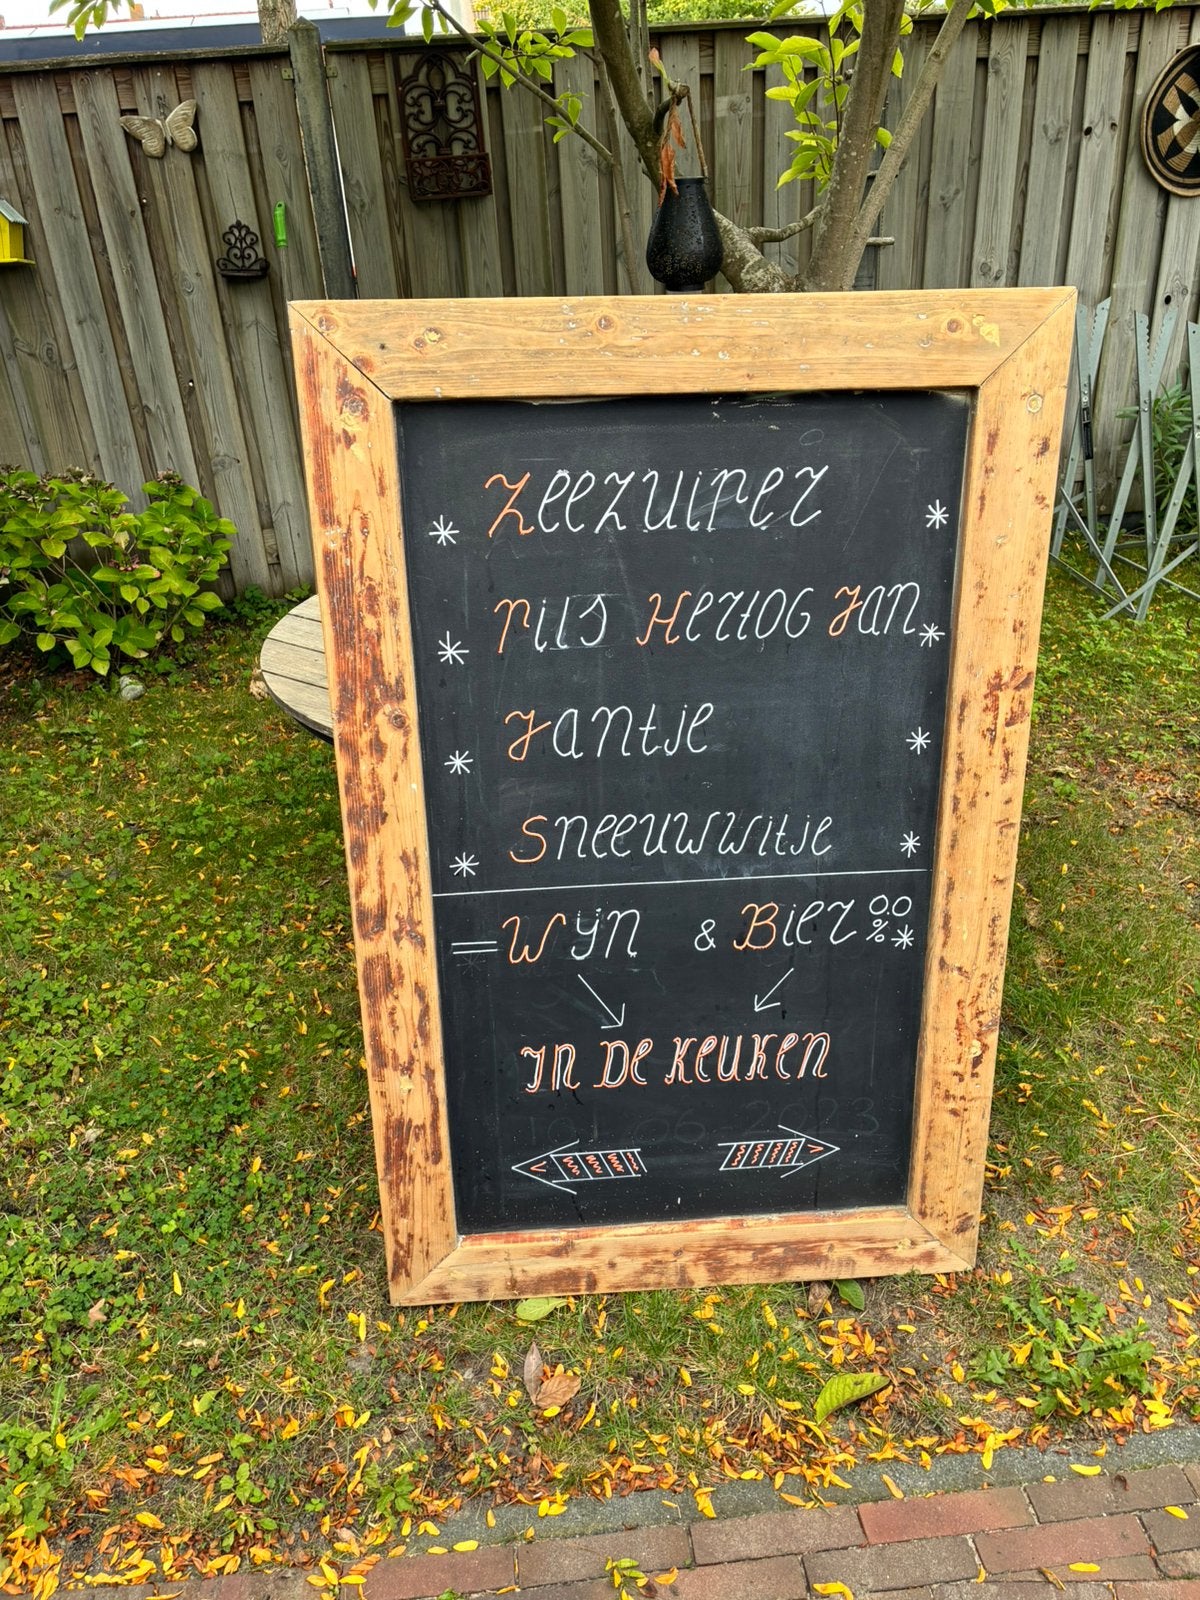 Zeezuiper
Pils Hertog Jan
Jantje
Sneeuwwitje
Wijn & Bier 0.0 %
IN DE KEUKEN